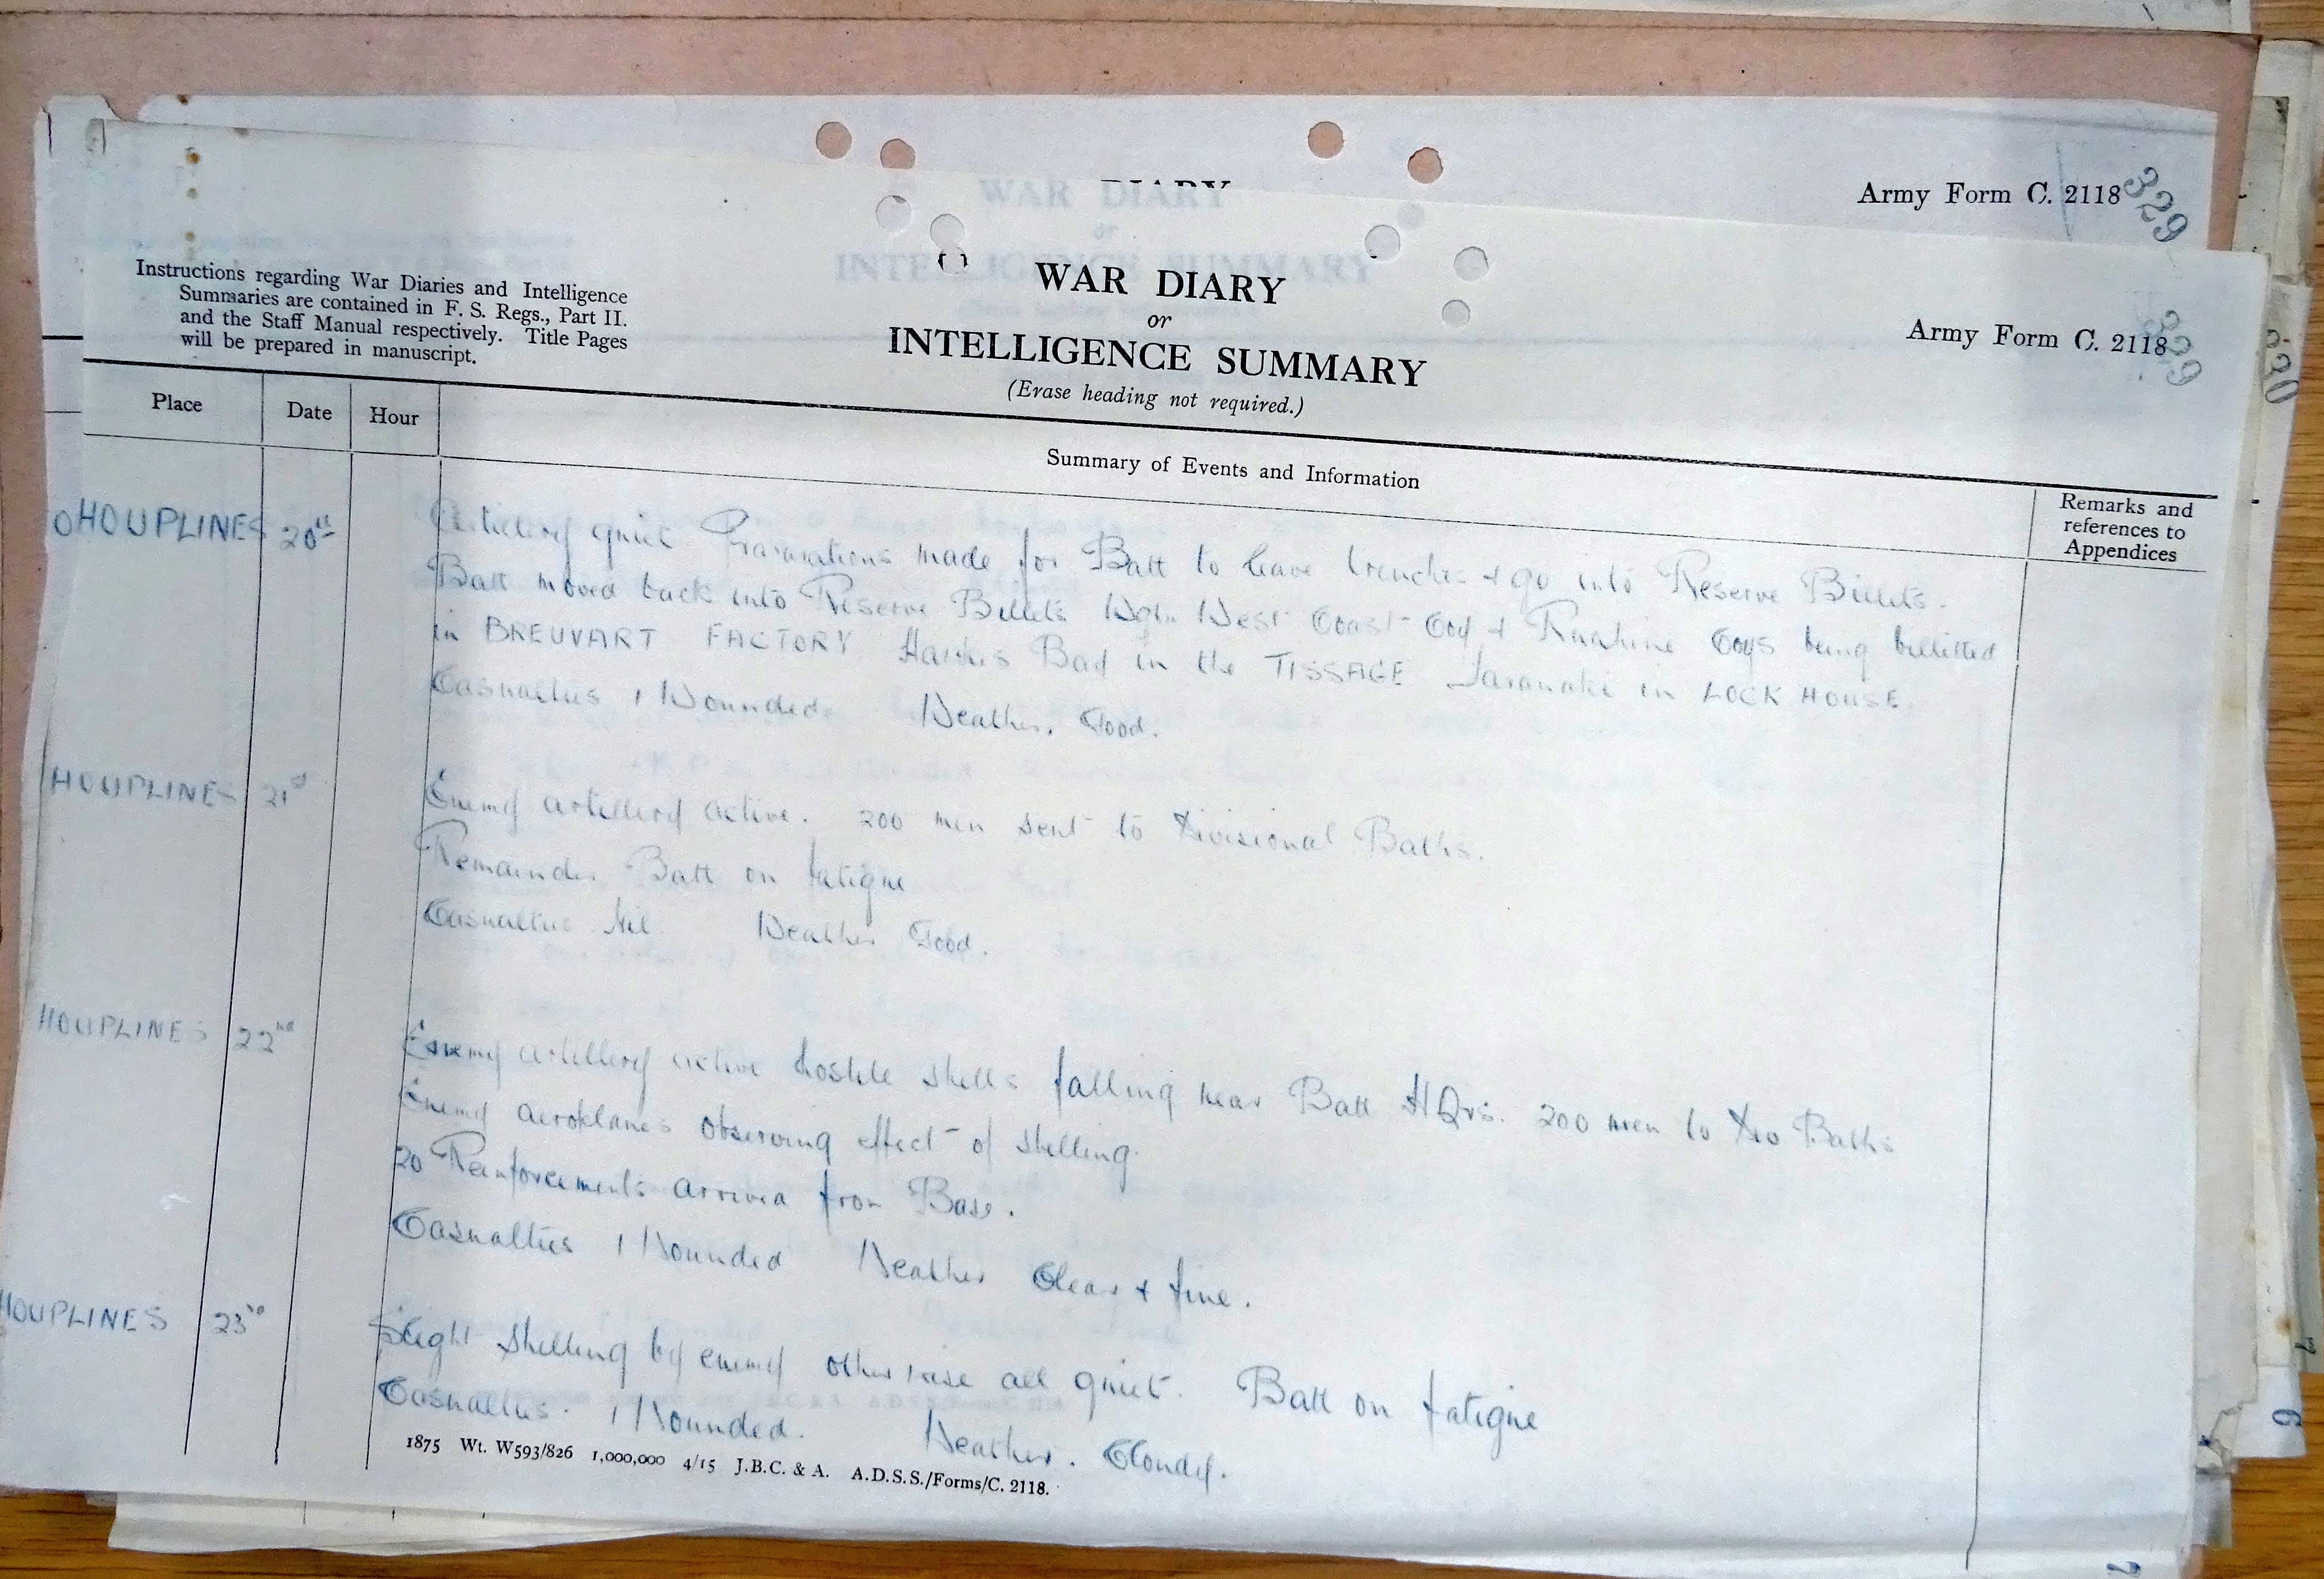 DIARY
Army Form C. 2118
329
Instructions regarding War Diaries and Intelligence
Summaries are contained in F. S. Regs., Part II.
and the Staff Manual respectively. Title Pages
will be prepared in manuscript.
WAR DIARY
or
INTELLIGENCE SUMMARY
(Erase heading not required.)
Army Form C. 2118
329
Place
Date
Hour
Summary of Events and Information
Remarks and
references to
Appendices
HOUPLINES 20th Artillery quiet Preparations made for Batt to leave trenches & go into Reserve Billets.
Batt moved back into Reserve Billets Wgtn West Coast Coy & Ruahine Coys being billitted
in BREUVART FACTORY Hawkes Bay in the TISSAGE Taranaki in LOCK HOUSE.
Casualties 1 Wounded Weather. Good.
HOUPLINES 21st Enemy artillery active. 200 men sent to Divisional Baths.
Remainder Batt on fatigue
Casualties Nil. Weather Good.
HOUPLINES 22nd Enemy artillery active hostile shells falling near Batt HQrs. 200 men to Div Baths
Enemy aeroplanes observing effect of shelling.
20 Reinforcements arrived from Base.
Casualties 1 Wounded Weather Clear & fine.
HOUPLINES 23rd Slight shelling by enemy otherwise all quiet. Batt on fatigue
Casualties. 1 Wounded. Weather. Cloudy.
1875 Wt. W593/826 1,000,000 4/15 J.B.C. & A. A.D.S.S./Forms/C. 2118.